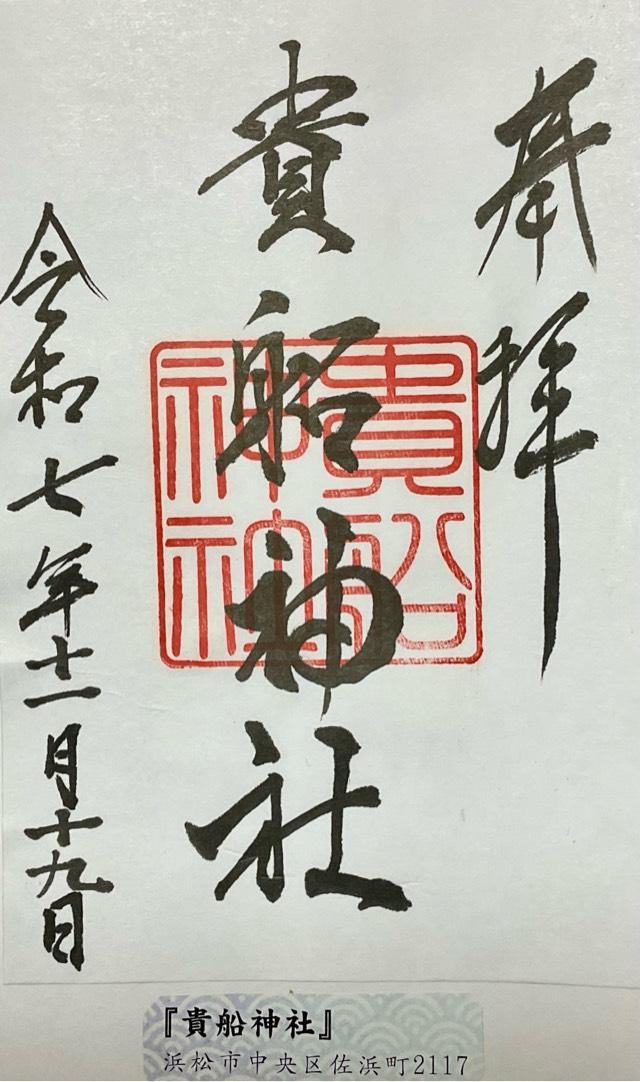 奉拝
貴船神社
貴船神社
令和七年十一月十九日
『貴船神社』
浜松市中央区佐浜町2117